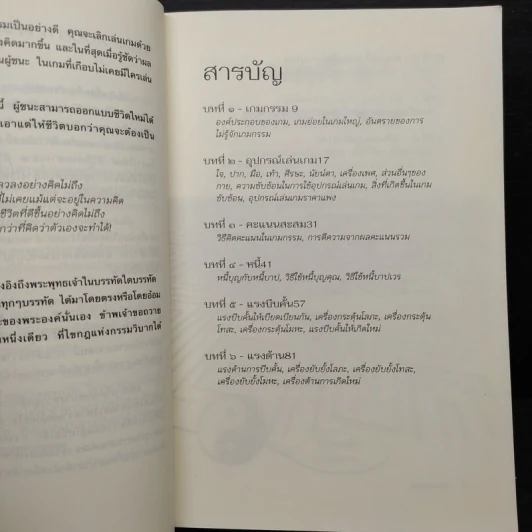 รมเป็นอย่างดี คุณจะเลิกเล่นเกมด้วย
งคิดมากขึ้น และในที่สุดเมื่อรู้ชัดว่าผล
นผู้ชนะ ในเกมที่เกือบไม่เคยมีใครเล่น
นี้ ผู้ชนะสามารถออกแบบชีวิตใหม่ได้
เอาแต่ให้ชีวิตบอกว่าคุณจะต้องเป็น
ลวลงอย่างคิดไม่ถึง
ที่ไม่เคยแม้แต่จะอยู่ในความคิด
ชีวิตที่ดีขึ้นอย่างคิดไม่ถึง
กว่าที่คิดว่าตัวเองจะทำได้!
งอิงถึงพระพุทธเจ้าในบรรทัดใดบรรทัด
ทุกๆบรรทัด ได้มาโดยตรงหรือโดยอ้อม
ะของพระองค์นั่นเอง ข้าพเจ้าขอถวาย
หนึ่งเดียว ที่ไขกฎแห่งกรรมวิบากได้
สารบัญ
บทที่ ๑ - เกมกรรม 9
องค์ประกอบของเกม, เกมย่อยในเกมใหญ่, อันตรายของการ
ไม่รู้จักเกมกรรม
บทที่ ๒ - อุปกรณ์เล่นเกม17
ใจ, ปาก, มือ, เท้า, ศีรษะ, นัยน์ตา, เครื่องเพศ, ส่วนอื่นๆของ
กาย, ความซับซ้อนในการใช้อุปกรณ์เล่นเกม, สิ่งที่เกิดขึ้นในเกม
ซับซ้อน, อุปกรณ์เล่นเกมราคาแพง
บทที่ ๓ - คะแนนสะสม31
วิธีคิดคะแนนในเกมกรรม, การตีความจากผลคะแนนรวม
บทที่ ๔ - หนี้41
หนี้บุญกับหนี้บาป, วิธีใช้หนี้บุญคุณ, วิธีใช้หนี้บาปเวร
บทที่ ๕ - แรงบีบคั้น57
แรงบีบคั้นให้เบียดเบียนกัน, เครื่องกระตุ้นโลภะ, เครื่องกระตุ้น
โทสะ, เครื่องกระตุ้นโมหะ, แรงบีบคั้นให้เกิดใหม่
บทที่ ๖ - แรงต้าน81
แรงต้านการบีบคั้น, เครื่องยับยั้งโลภะ, เครื่องยับยั้งโทสะ,
เครื่องยับยั้งโมหะ, เครื่องต้านการเกิดใหม่